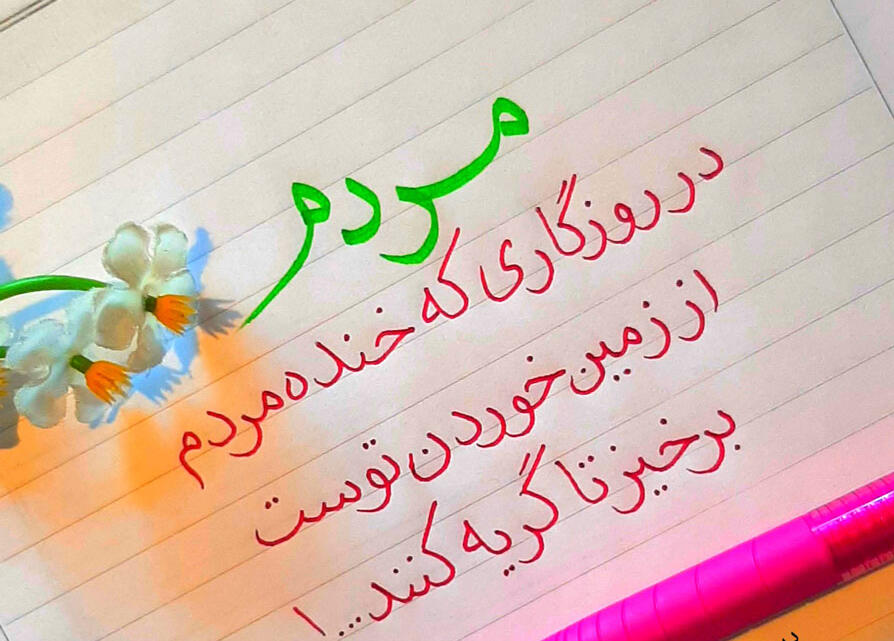 مردم
در روزگاری که خنده مردم
از زمین خوردن توست
برخیز تا گریه کنند...!